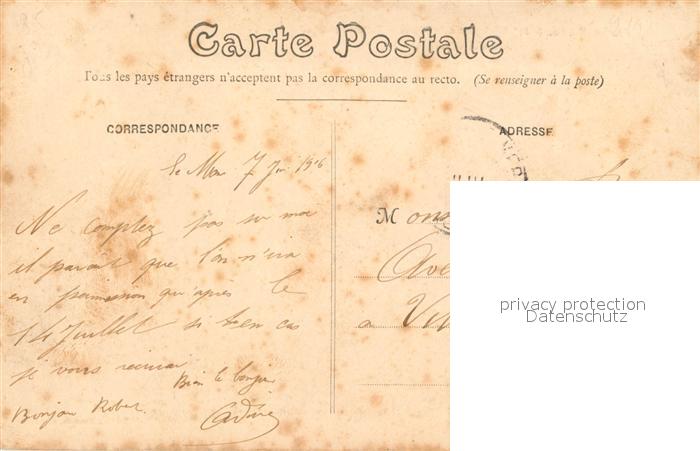 Carte Postale
Tous les pays étrangers n'acceptent pas la correspondance au recto. (Se renseigner à la poste)
CORRESPONDANCE
ADRESSE
le 7
Ne comptez pas sur moi
il parait que l'on n'ira
en permission qu'après le
14 Juillet si bien cas
je vous
Bien le bonjour
Bonjour Robert.
Mons
Ave
a
privacy protection
Datenschutz